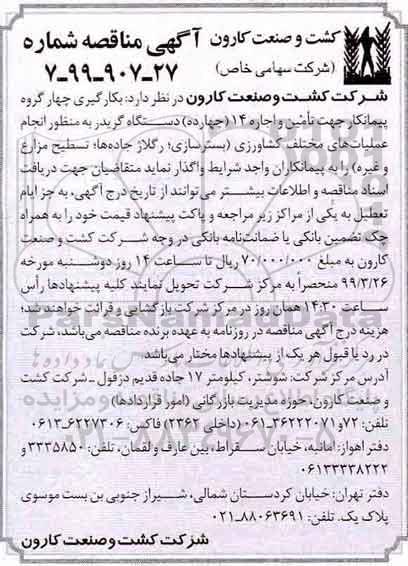 کشت و صنعت کارون
(شرکت سهامی خاص)
آگهی مناقصه شماره
۷-۹۹-۹۰۷-۲۷
شرکت کشت و صنعت کارون در نظر دارد: بکارگیری چهار گروه
پیمانکار جهت تأمین و اجاره ۱۴ (چهارده) دستگاه گریدر به منظور انجام
عملیات‌های مختلف کشاورزی (بسترسازی؛ رگلاژ جاده‌ها؛ تسطیح مزارع
و غیره) را به پیمانکاران واجد شرایط واگذار نماید متقاضیان جهت دریافت
اسناد مناقصه و اطلاعات بیشتر می‌توانند از تاریخ درج آگهی، به جز ایام
تعطیل به یکی از مراکز زیر مراجعه و پاکت پیشنهاد قیمت خود را به همراه
چک تضمین بانکی یا ضمانت‌نامه بانکی در وجه شرکت کشت و صنعت
کارون به مبلغ ۷۰/۰۰۰/۰۰۰ ریال تا ساعت ۱۴ روز دوشنبه مورخه
۹۹/۳/۲۶ منحصراً به مرکز شرکت تحویل نمایند کلیه پیشنهادها رأس
ساعت ۱۴:۳۰ همان روز در مرکز شرکت بازگشایی و قرائت خواهند شد؛
هزینه درج آگهی مناقصه در روزنامه به عهده برنده مناقصه می‌باشد، شرکت
در رد یا قبول هر یک از پیشنهادها مختار می‌باشد.
آدرس مرکز شرکت: شوشتر، کیلومتر ۱۷ جاده قدیم دزفول ـ شرکت کشت
و صنعت کارون، حوزه مدیریت بازرگانی (امور قراردادها)
تلفن: ۷۲ و ۳۶۲۲۲۰۷۱-۰۶۱ (داخلی ۲۳۶۲) فاکس: ۶۲۲۷۳۰۶-۰۶۱۳
دفتر اهواز: امانیه، خیابان سقراط، بین عارف و لقمان، تلفن: ۳۳۳۵۸۵۰ و
۰۶۱۳۳۳۳۸۲۲۲
دفتر تهران: خیابان کردستان شمالی، شیراز جنوبی بن بست موسوی
پلاک یک. تلفن: ۸۸۰۶۳۶۹۱-۰۲۱
شرکت کشت و صنعت کارون